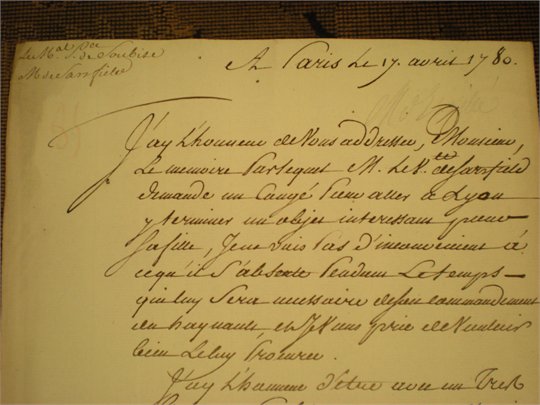 Le M.al P.ce de Soubise
M. de Sarsfield
A Paris Le 17. avril 1780.
J'ay L'honneur de Vous addresser, Monsieur,
Le memoire Par lequel M. Le V.te de Sarsfield
demande un Congé Pour aller a Lyon
y terminer un objet interessant pour
Sa fille, Je ne vois Pas d'inconvenient à
ce qu'il S'absente Pendant Le temps
qui luy Sera necessaire de son commandement
en haynault, et Je Vous prie de Vouloir
bien Le luy Procurer.
J'ay L'honneur d'être avec un Tres